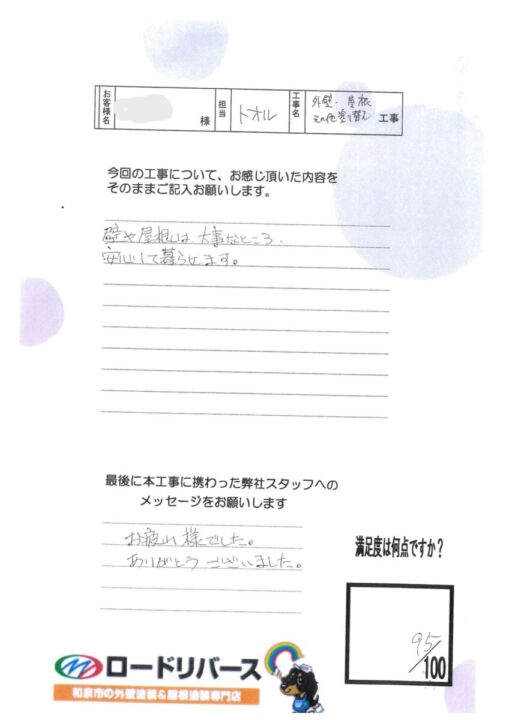 お客様名 様 担当 トオル 工事名 外壁・屋根 その他塗り替え 工事
今回の工事について、お感じ頂いた内容を
そのままご記入お願いします。
壁や屋根は、大事なところ、
安心して暮らせます。
最後に本工事に携わった弊社スタッフへの
メッセージをお願いします
お疲れ様でした。
ありがとうございました。
満足度は何点ですか？
95/100
ロードリバース
和泉市の外壁塗装&屋根塗装専門店